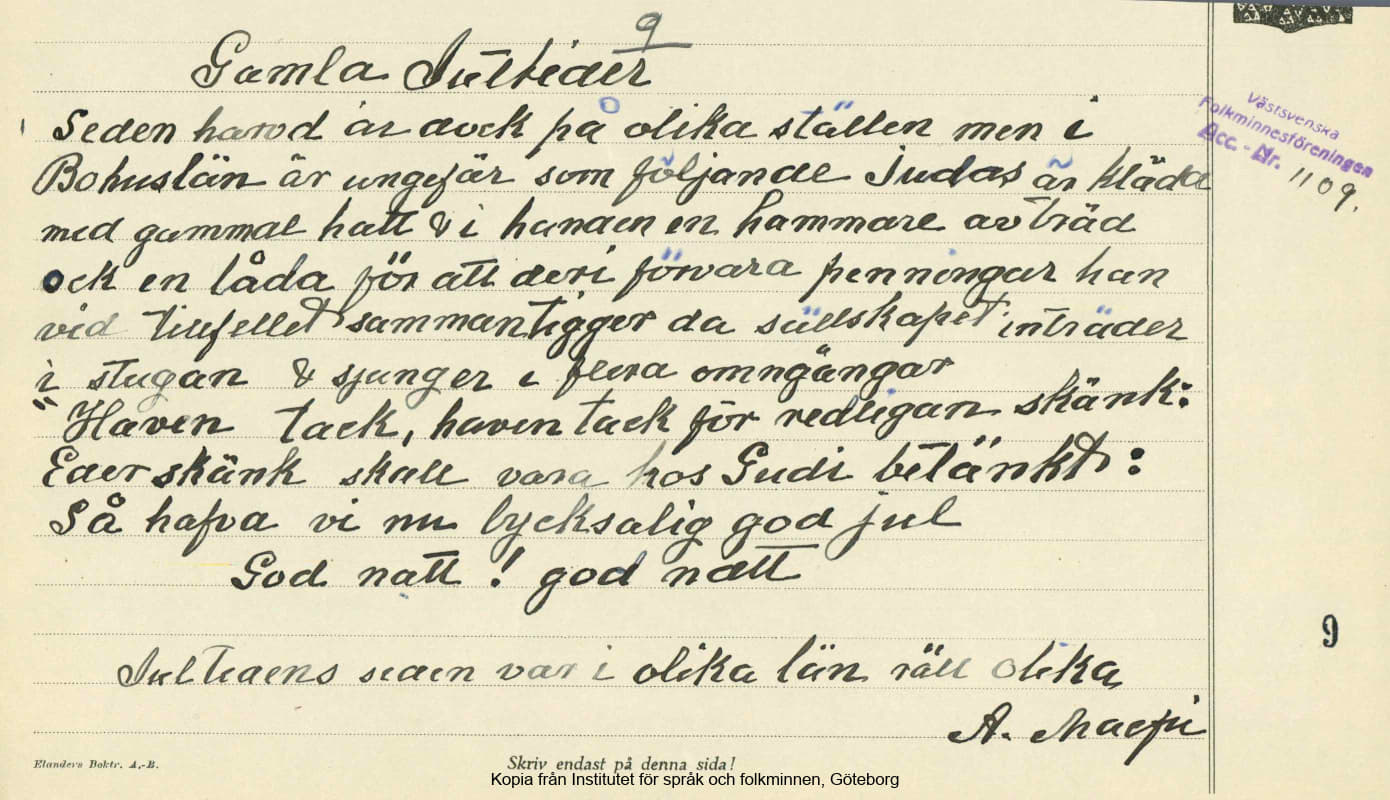 9
Gamla Jultider
Seden harvd är dock på olika ställen men i
Bohuslän är ungefär som följande Judas är kläda
med gammal hatt & i handen en hammare av träd
ock en låda för att deri förvara penningar han
vid tillfellet sammantigger da sällskapet inträder
i stugan & sjunger i flera omngångar
"Haven tack, haven tack för redligan skänk:
Eder skänk skall vara hos Gudi betänkt:
Så hafva vi nu lycksalig god jul
God natt! god natt
Jultidens seden var i olika län rätt olika
A.
Västsvenska
Folkminnesföreningen
Acc. - Nr. 1109.
9
Elanders Boktr. A.-B.
Skriv endast på denna sida!
Kopia från Institutet för språk och folkminnen, Göteborg